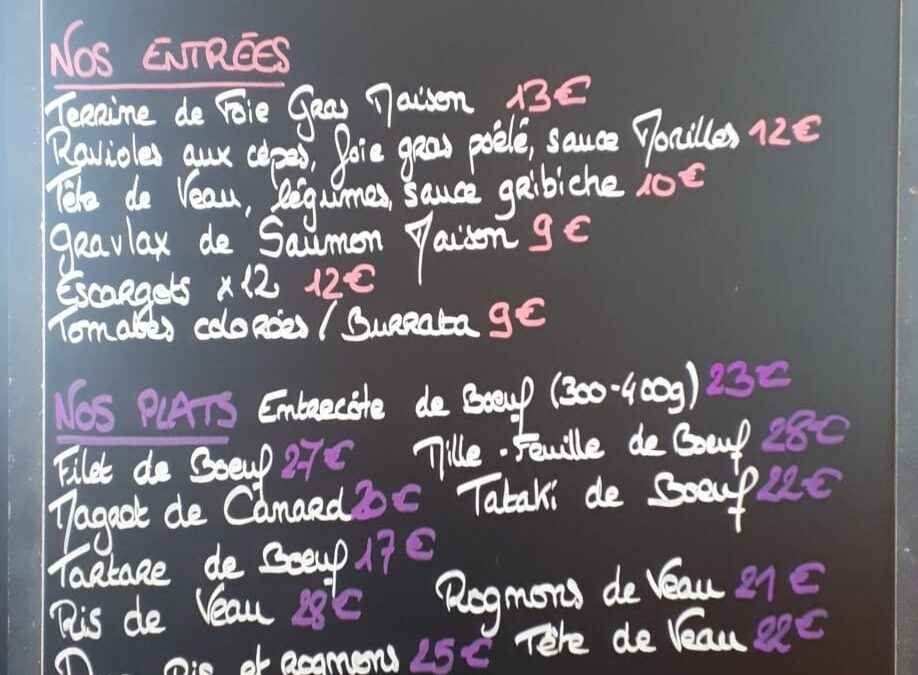 NOS ENTRÉES
Terrine de Foie Gras Maison 13€
Ravioles aux cèpes, foie gras poêlé, sauce Morilles 12€
Tête de Veau, légumes, sauce gribiche 10€
Gravlax de Saumon Maison 9€
Escargots x12 12€
Tomates colorées / Burrata 9€
NOS PLATS Entrecôte de Boeuf (300-400g) 23€
Filet de Boeuf 27€ Mille-Feuille de Boeuf 28€
Magret de Canard 20€ Tataki de Boeuf 22€
Tartare de Boeuf 17€
Ris de Veau 28€ Rognons de Veau 21€
Ris et rognons 25€ Tête de Veau 22€